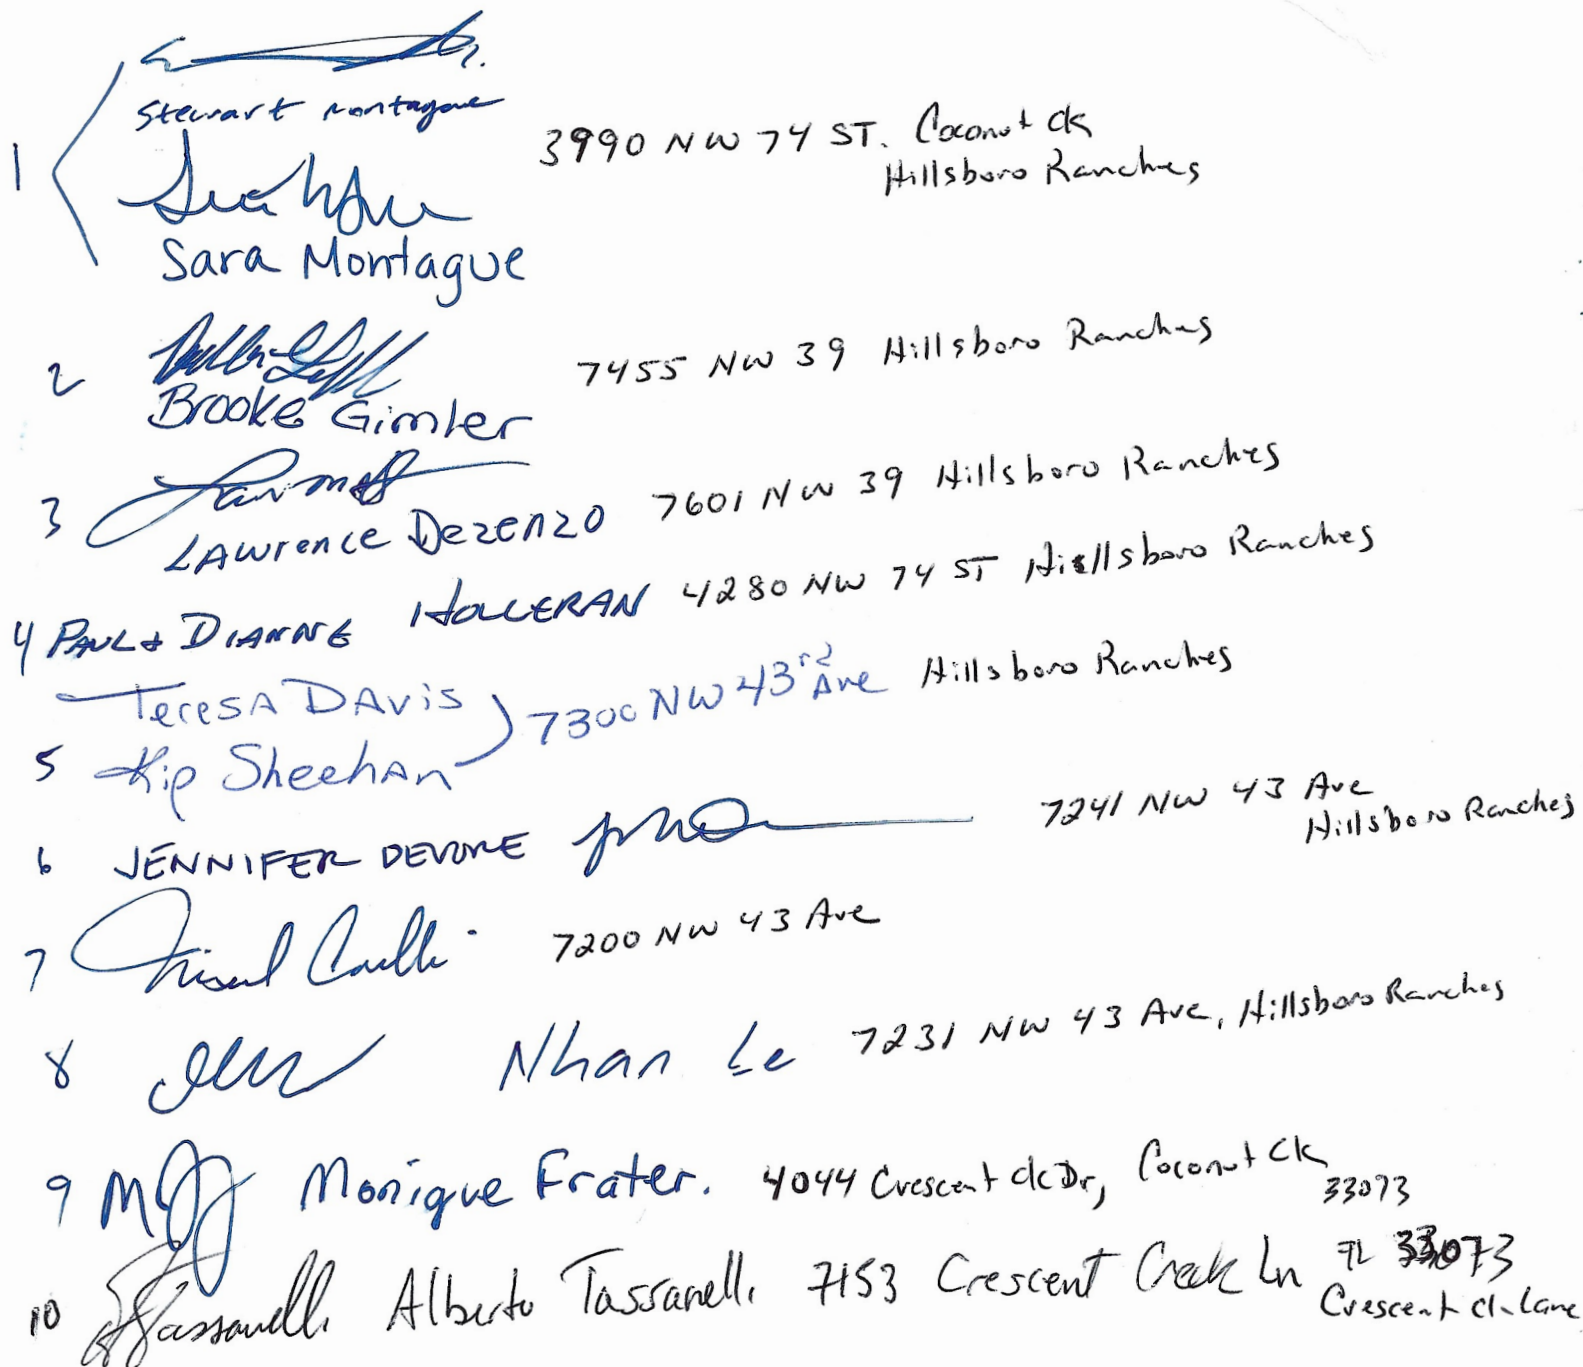 1 Stewart Montague
3990 NW 74 ST. Coconut Ck
Hillsboro Ranches
Sara Montague
2 7455 NW 39 Hillsboro Ranches
Brooke Gimler
3 7601 NW 39 Hillsboro Ranches
LAWrence DezenZO
4 PAUL & DIANNE HOLLERAN 4280 NW 74 ST Hillsboro Ranches
TeresA DAvis
5 Kip SheehAn 7300 NW 43rd Ave Hillsboro Ranches
6 JENNIFER DEVORE 7241 NW 43 Ave
Hillsboro Ranches
7 7200 NW 43 Ave
8 Nhan Le 7231 NW 43 Ave, Hillsboro Ranches
9 Monique Frater. 4044 Crescent Ck Dr, Coconut Ck
33073
10 Tassanelli Alberto Tassanelli 7153 Crescent Creek Ln FL 33073
Crescent Ck Lane